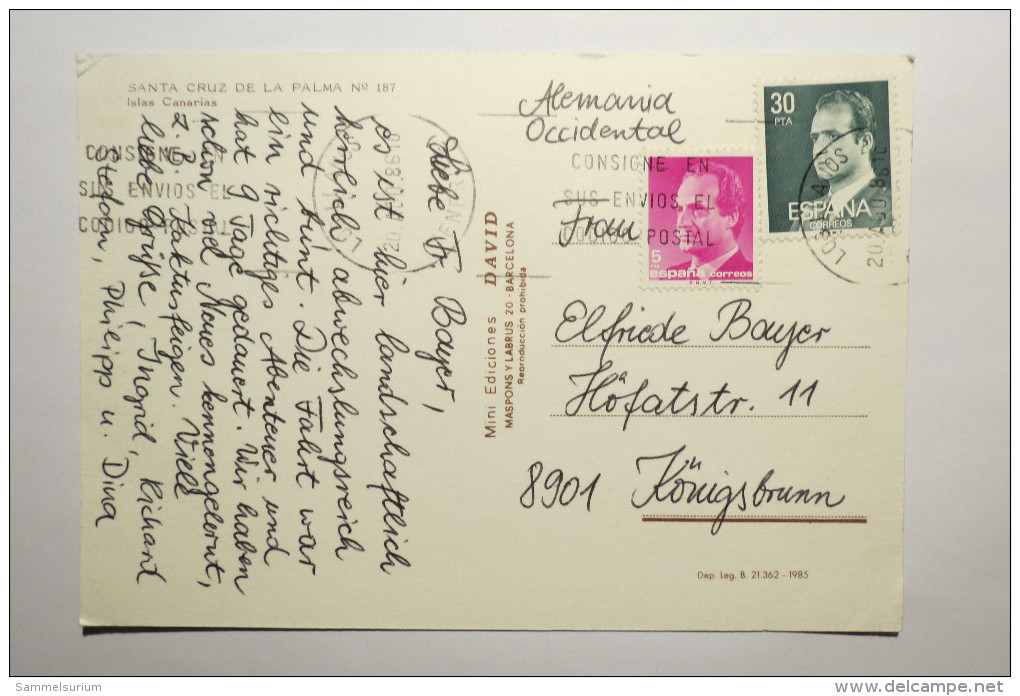 SANTA CRUZ DE LA PALMA Nº 187
Islas Canarias
Liebe Fr. Bayer,
es ist hier landschaftlich
herrlich abwechslungsreich
und bunt. Die Fahrt war
ein richtiges Abenteuer und
hat 9 Tage gedauert. Wir haben
schon viel Neues kennengelernt,
z. B. Kaktusfeigen. Viele
liebe Grüße, Ingrid, Richard
Stefan, Philipp u. Dina
CONSIGNE EN
SUS ENVIOS EL
CODIGO POSTAL
Mini Ediciones DAVID
MASPONS Y LABRUS 20 - BARCELONA
Reproducción prohibida
Alemania
Occidental
CONSIGNE EN
SUS ENVIOS EL
CODIGO POSTAL
5
PTA
españa correos
F.N.M.T.
30
PTA
ESPAÑA
CORREOS
Frau
Elfriede Bayer
Höfatstr. 11
8901 Königsbrunn
Dep. Leg. B. 21.362 - 1985
Sammelsurium
www.delcampe.net